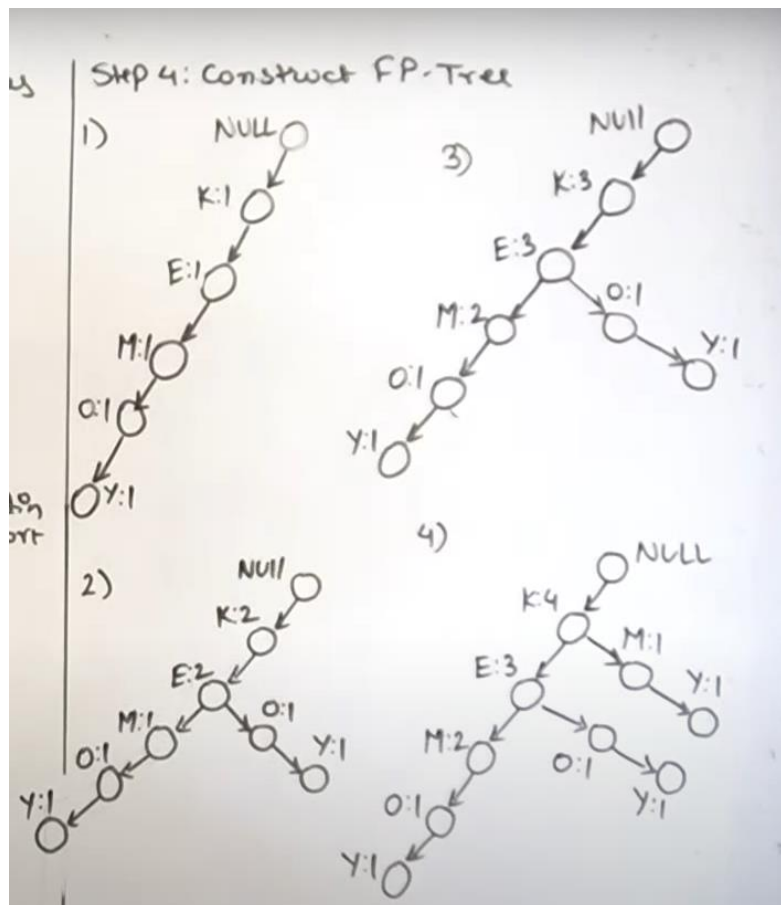 Step 4: Construct FP-Tree
1)
NULL
K:1
E:1
M:1
O:1
Y:1
2)
NUll
K:2
E:2
M:1
O:1
O:1
Y:1
Y:1
3)
NUll
K:3
E:3
M:2
O:1
O:1
Y:1
Y:1
4)
NULL
K:4
E:3
M:1
Y:1
M:2
O:1
Y:1
O:1
Y:1